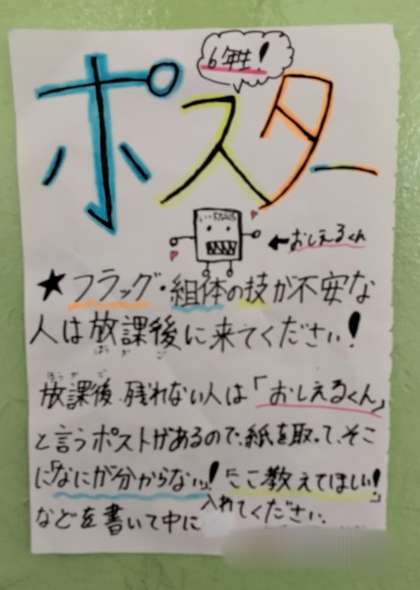 6年生!
ポスター
←おしえるくん
★フラッグ・組体の技が不安な
人は放課後に来てください!
ほう か ご
ほう か ご
放課後残れない人は「おしえるくん」
と言うポストがあるので、紙を取って、そこ
に「なにが分からない!」「ここ教えてほしい!」
などを書いて中に入れてください。